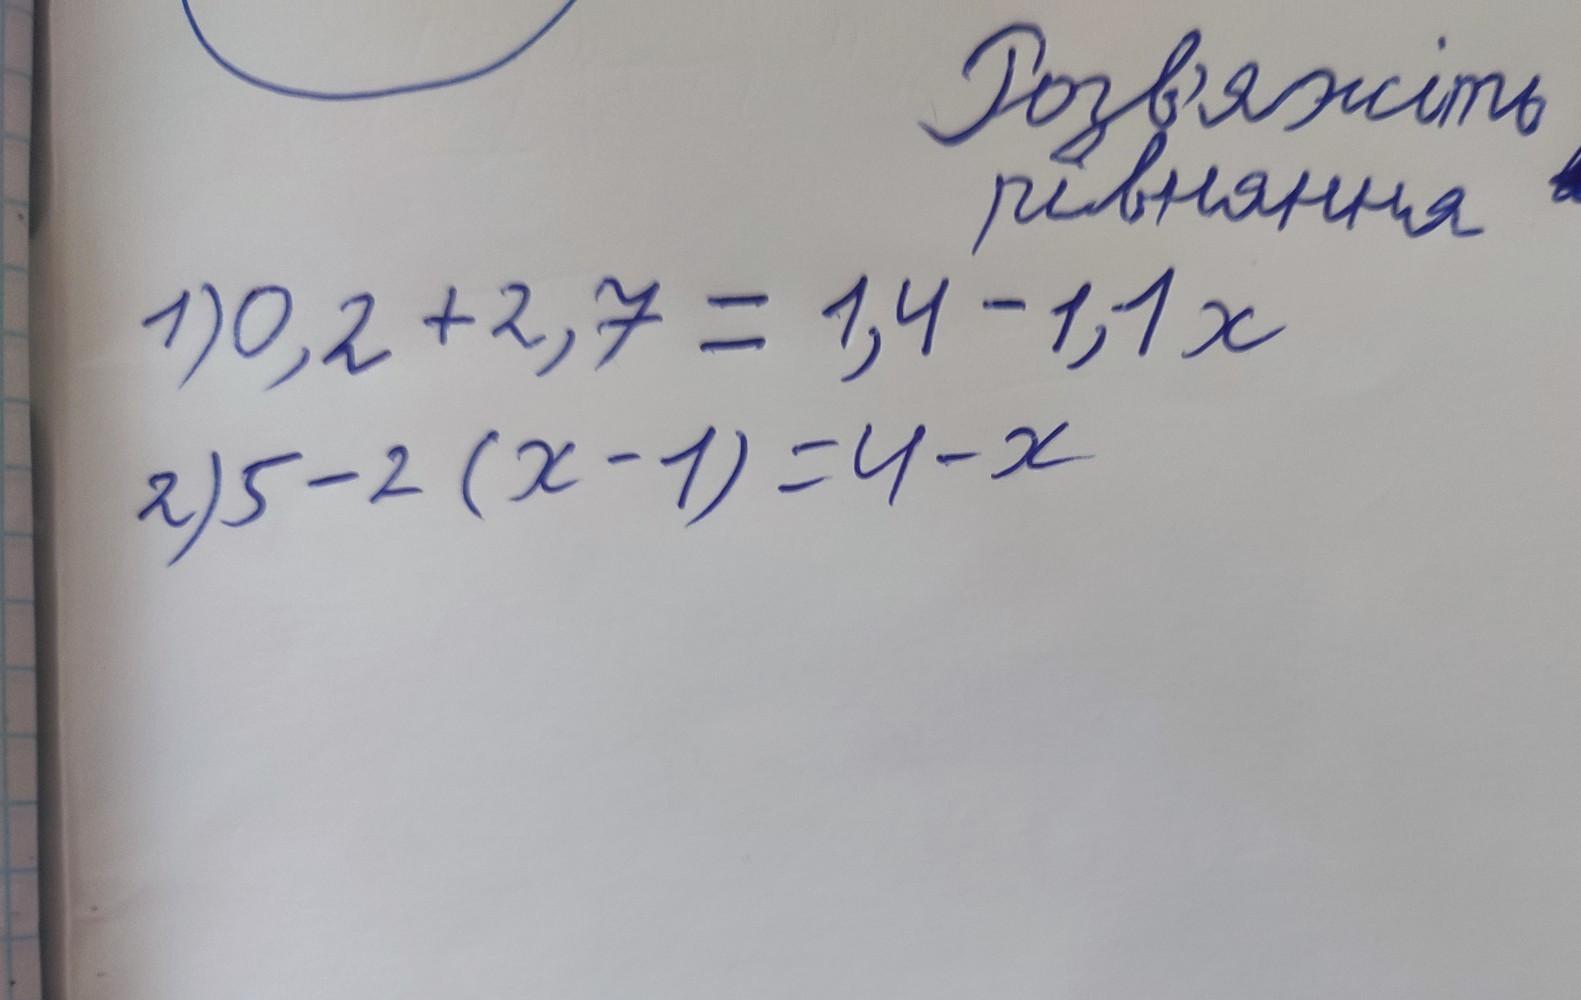 Розв'яжіть
рівняння
1) 0,2 + 2,7 = 1,4 - 1,1x
2) 5 - 2 (x - 1) = 4 - x